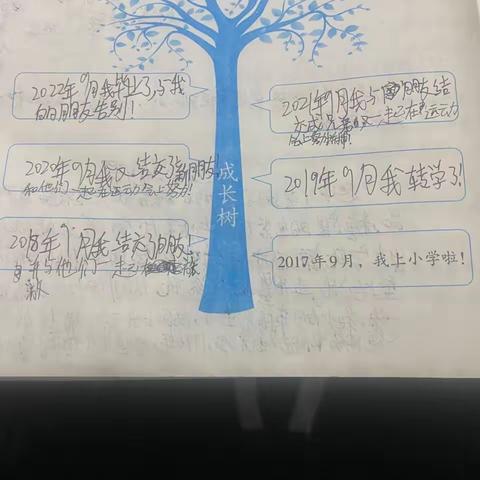 2022年9月我毕业了,与我
的朋友告别!
2021年9月我与朋友结
会上努力拼搏!
2020年9月我又结交了新朋友
和他们一起在运动会上努力!
2019年9月我转学了!
2018年9月我结交了朋友
并与他们一起
2017年9月,我上小学啦!
成长树